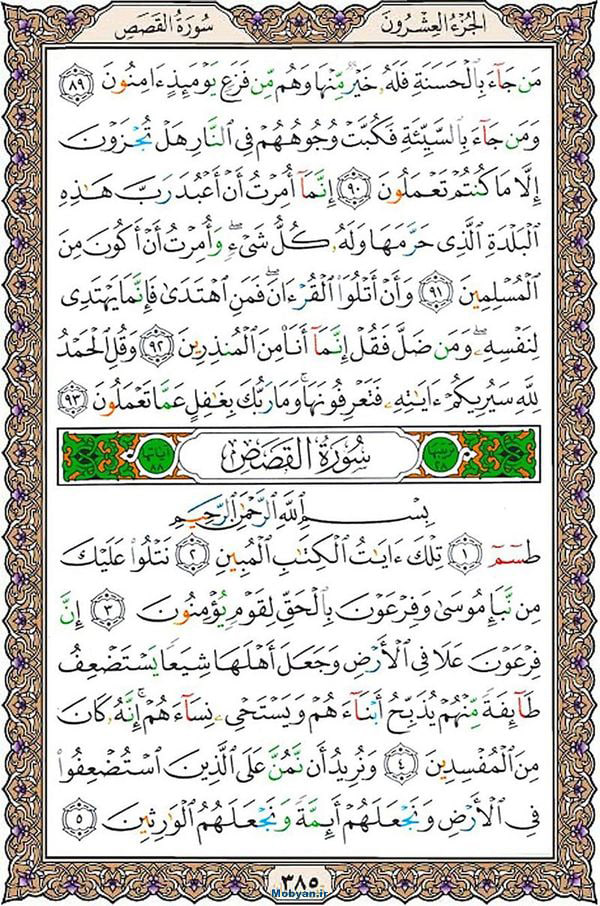 الجزء العشرون
سورة القصص
مَن جَآءَ بِالْحَسَنَةِ فَلَهُۥ خَيْرٌ مِّنْهَا وَهُم مِّن فَزَعٍ يَوْمَئِذٍ ءَامِنُونَ ﴿٨٩﴾
وَمَن جَآءَ بِالسَّيِّئَةِ فَكُبَّتْ وُجُوهُهُمْ فِى النَّارِ هَلْ تُجْزَوْنَ
إِلَّا مَا كُنتُمْ تَعْمَلُونَ ﴿٩٠﴾ إِنَّمَآ أُمِرْتُ أَنْ أَعْبُدَ رَبَّ هَٰذِهِ
الْبَلْدَةِ الَّذِى حَرَّمَهَا وَلَهُۥ كُلُّ شَىْءٍ ۖ وَأُمِرْتُ أَنْ أَكُونَ مِنَ
الْمُسْلِمِينَ ﴿٩١﴾ وَأَنْ أَتْلُوَا۟ الْقُرْءَانَ ۖ فَمَنِ اهْتَدَىٰ فَإِنَّمَا يَهْتَدِى
لِنَفْسِهِۦ ۖ وَمَن ضَلَّ فَقُلْ إِنَّمَآ أَنَا۠ مِنَ الْمُنذِرِينَ ﴿٩٢﴾ وَقُلِ الْحَمْدُ
لِلَّهِ سَيُرِيكُمْ ءَايَٰتِهِۦ فَتَعْرِفُونَهَا ۚ وَمَا رَبُّكَ بِغَٰفِلٍ عَمَّا تَعْمَلُونَ ﴿٩٣﴾
ترتيبها ٢٨ سُورَةُ الْقَصَصِ آياتها ٨٨
بِسْمِ اللَّهِ الرَّحْمَٰنِ الرَّحِيمِ
طسٓمٓ ﴿١﴾ تِلْكَ ءَايَٰتُ الْكِتَٰبِ الْمُبِينِ ﴿٢﴾ نَتْلُوا۟ عَلَيْكَ
مِن نَّبَإِ مُوسَىٰ وَفِرْعَوْنَ بِالْحَقِّ لِقَوْمٍ يُؤْمِنُونَ ﴿٣﴾ إِنَّ
فِرْعَوْنَ عَلَا فِى الْأَرْضِ وَجَعَلَ أَهْلَهَا شِيَعًا يَسْتَضْعِفُ
طَآئِفَةً مِّنْهُمْ يُذَبِّحُ أَبْنَآءَهُمْ وَيَسْتَحْىِۦ نِسَآءَهُمْ ۚ إِنَّهُۥ كَانَ
مِنَ الْمُفْسِدِينَ ﴿٤﴾ وَنُرِيدُ أَن نَّمُنَّ عَلَى الَّذِينَ اسْتُضْعِفُوا۟
فِى الْأَرْضِ وَنَجْعَلَهُمْ أَئِمَّةً وَنَجْعَلَهُمُ الْوَٰرِثِينَ ﴿٥﴾
٣٨٥
Mobyan.ir